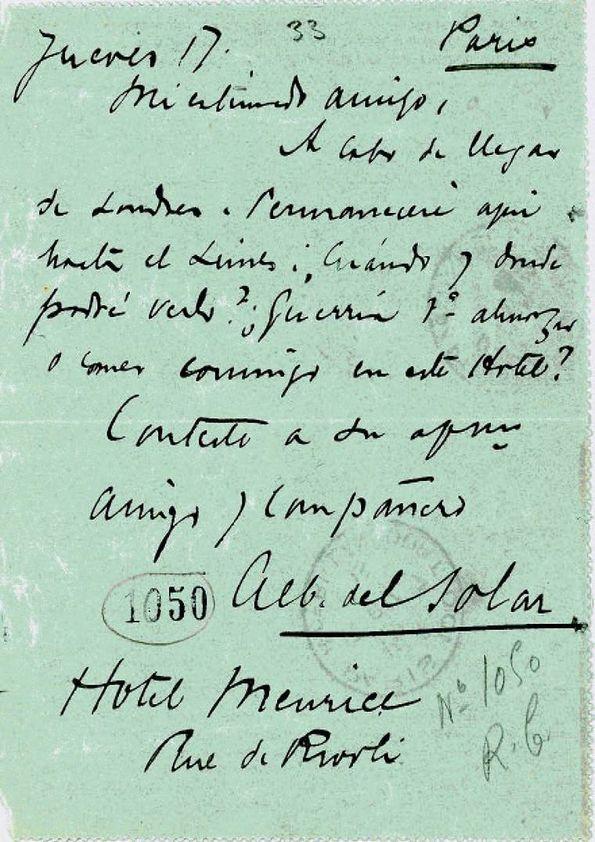 Jueves 17. 33 Paris
Mi estimado amigo,
Acabo de llegar
de Londres. Permaneceré aquí
hasta el Lunes ¿Cuándo y donde
podré verlo? ¿Querría Vd almorzar
o comer conmigo en este Hotel?
Conteste a su afmo
amigo y compañero
1050 Alb. del Solar
Hotel Meurice
Nº 1050
Rue de Rivoli